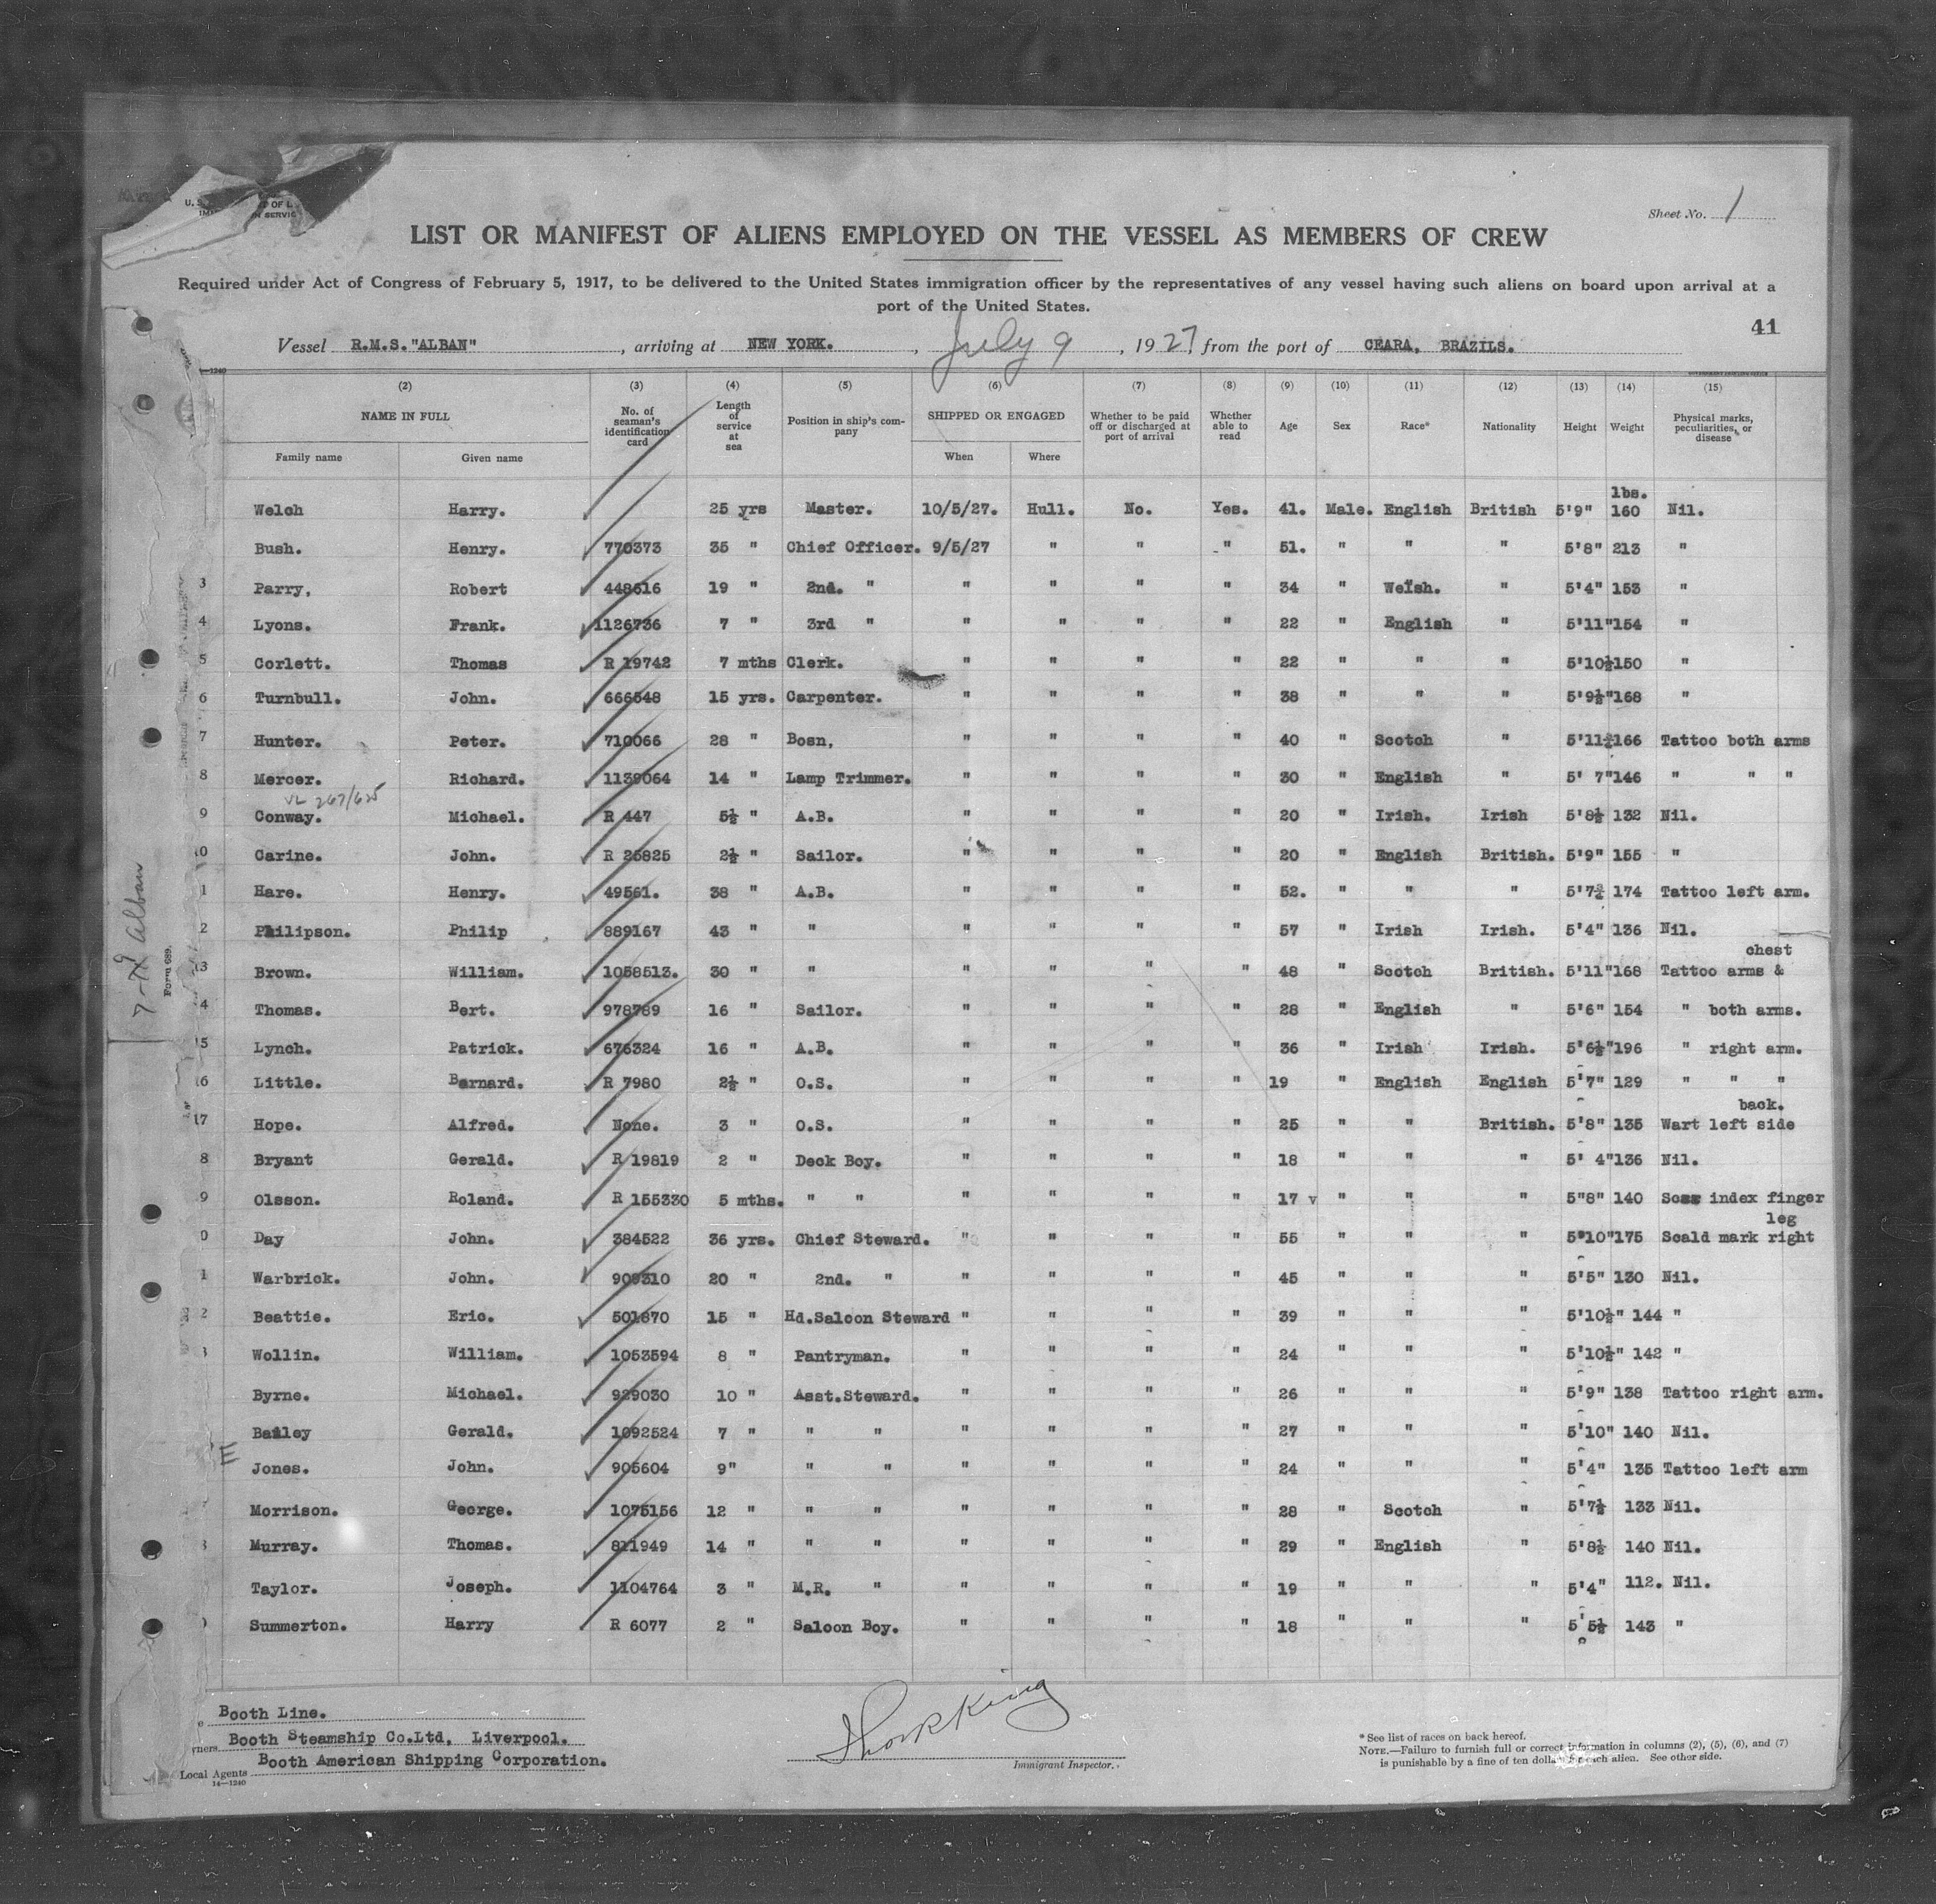 Sheet No. 1
LIST OR MANIFEST OF ALIENS EMPLOYED ON THE VESSEL AS MEMBERS OF CREW
Required under Act of Congress of February 5, 1917, to be delivered to the United States immigration officer by the representatives of any vessel having such aliens on board upon arrival at a
port of the United States.
41
Vessel R.M.S."ALBAN" , arriving at NEW YORK. , July 9 , 1927, from the port of CEARA, BRAZILS.
(2) (3) (4) (5) (6) (7) (8) (9) (10) (11) (12) (13) (14) (15)
NAME IN FULL No. of seaman's identification card Length of service at sea Position in ship's company SHIPPED OR ENGAGED Whether to be paid off or discharged at port of arrival Whether able to read Age Sex Race* Nationality Height Weight Physical marks, peculiarities, or disease
Family name Given name When Where
lbs.
Welch Harry. 25 yrs Master. 10/5/27. Hull. No. Yes. 41. Male. English British 5'9" 160 Nil.
Bush. Henry. 770373 35 " Chief Officer. 9/5/27 " " " 51. " " " 5'8" 213 "
3 Parry, Robert 448616 19 " 2nd. " " " " " 34 " Welsh. " 5'4" 153 "
4 Lyons. Frank. 1126736 7 " 3rd " " " " " 22 " English " 5'11" 154 "
5 Corlett. Thomas R 19742 7 mths Clerk. " " " " 22 " " " 5'10½ 150 "
6 Turnbull. John. 666548 15 yrs. Carpenter. " " " " 38 " " " 5'9½" 168 "
7 Hunter. Peter. 710066 28 " Bosn, " " " " 40 " Scotch " 5'11½ 166 Tattoo both arms
8 Mercer. Richard. 1139064 14 " Lamp Trimmer. " " " " 30 " English " 5' 7" 146 " " "
VL 267/625
9 Conway. Michael. R 447 5½ " A.B. " " " " 20 " Irish. Irish 5'8½ 132 Nil.
0 Carine. John. R 25825 2½ " Sailor. " " " " 20 " English British. 5'9" 155 "
1 Hare. Henry. 49561. 38 " A.B. " " " " 52. " " " 5'7½ 174 Tattoo left arm.
2 Philipson. Philip 889167 43 " " " " " " 57 " Irish Irish. 5'4" 136 Nil.
chest
13 Brown. William. 1058513. 30 " " " " " " 48 " Scotch British. 5'11" 168 Tattoo arms &
4 Thomas. Bert. 978789 16 " Sailor. " " " " 28 " English " 5'6" 154 " both arms.
5 Lynch. Patrick. 676324 16 " A.B. " " " " 36 " Irish Irish. 5'6½" 196 " right arm.
6 Little. Barnard. R 7980 2½ " O.S. " " " " 19 " English English 5'7" 129 " " "
back.
17 Hope. Alfred. None. 3 " O.S. " " " " 25 " " British. 5'8" 135 Wart left side
8 Bryant Gerald. R 19819 2 " Deck Boy. " " " " 18 " " " 5' 4" 136 Nil.
9 Olsson. Roland. R 155330 5 mths. " " " " " " 17 v " " " 5"8" 140 Scar index finger
leg
0 Day John. 384522 36 yrs. Chief Steward. " " " " 55 " " " 5'10" 175 Scald mark right
1 Warbrick. John. 909310 20 " 2nd. " " " " " 45 " " " 5'5" 130 Nil.
2 Beattie. Eric. 501870 15 " Hd.Saloon Steward " " " " 39 " " " 5'10½" 144 "
Wollin. William. 1053594 8 " Pantryman. " " " " 24 " " " 5'10½" 142 "
Byrne. Michael. 929030 10 " Asst.Steward. " " " " 26 " " " 5'9" 138 Tattoo right arm.
Bailey Gerald. 1092524 7 " " " " " " " 27 " " " 5'10" 140 Nil.
E Jones. John. 905604 9" " " " " " " 24 " " " 5'4" 135 Tattoo left arm
Morrison. George. 1075156 12 " " " " " " " 28 " Scotch " 5'7½ 133 Nil.
Murray. Thomas. 811949 14 " " " " " " " 29 " English " 5'8½ 140 Nil.
Taylor. Joseph. 1104764 3 " M.R. " " " " " 19 " " " 5'4" 112. Nil.
Summerton. Harry R 6077 2 " Saloon Boy. " " " " 18 " " " 5'5½ 143 "
7-9 Alban
Form 689.
Booth Line.
Booth Steamship Co.Ltd, Liverpool.
Local Agents Booth American Shipping Corporation.
14—1240
Immigrant Inspector.
* See list of races on back hereof.
NOTE.—Failure to furnish full or correct information in columns (2), (5), (6), and (7)
is punishable by a fine of ten dollars for each alien. See other side.